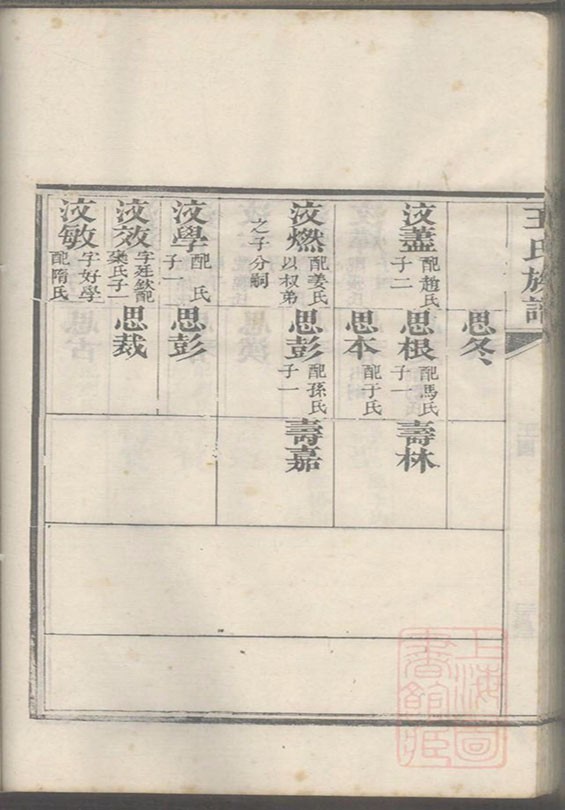 王氏族譜
思冬
汶蓋
配趙氏
子二
思根
配馬氏
子一
壽林
思本
配于氏
汶燃
配姜氏
以权弟
之子分嗣
思彭
配孫氏
子一
壽嘉
汶學
配 氏
子一
思彭
汶效
氏子一
思裁
汶敏
字好學
配隋氏
上海图
书館藏